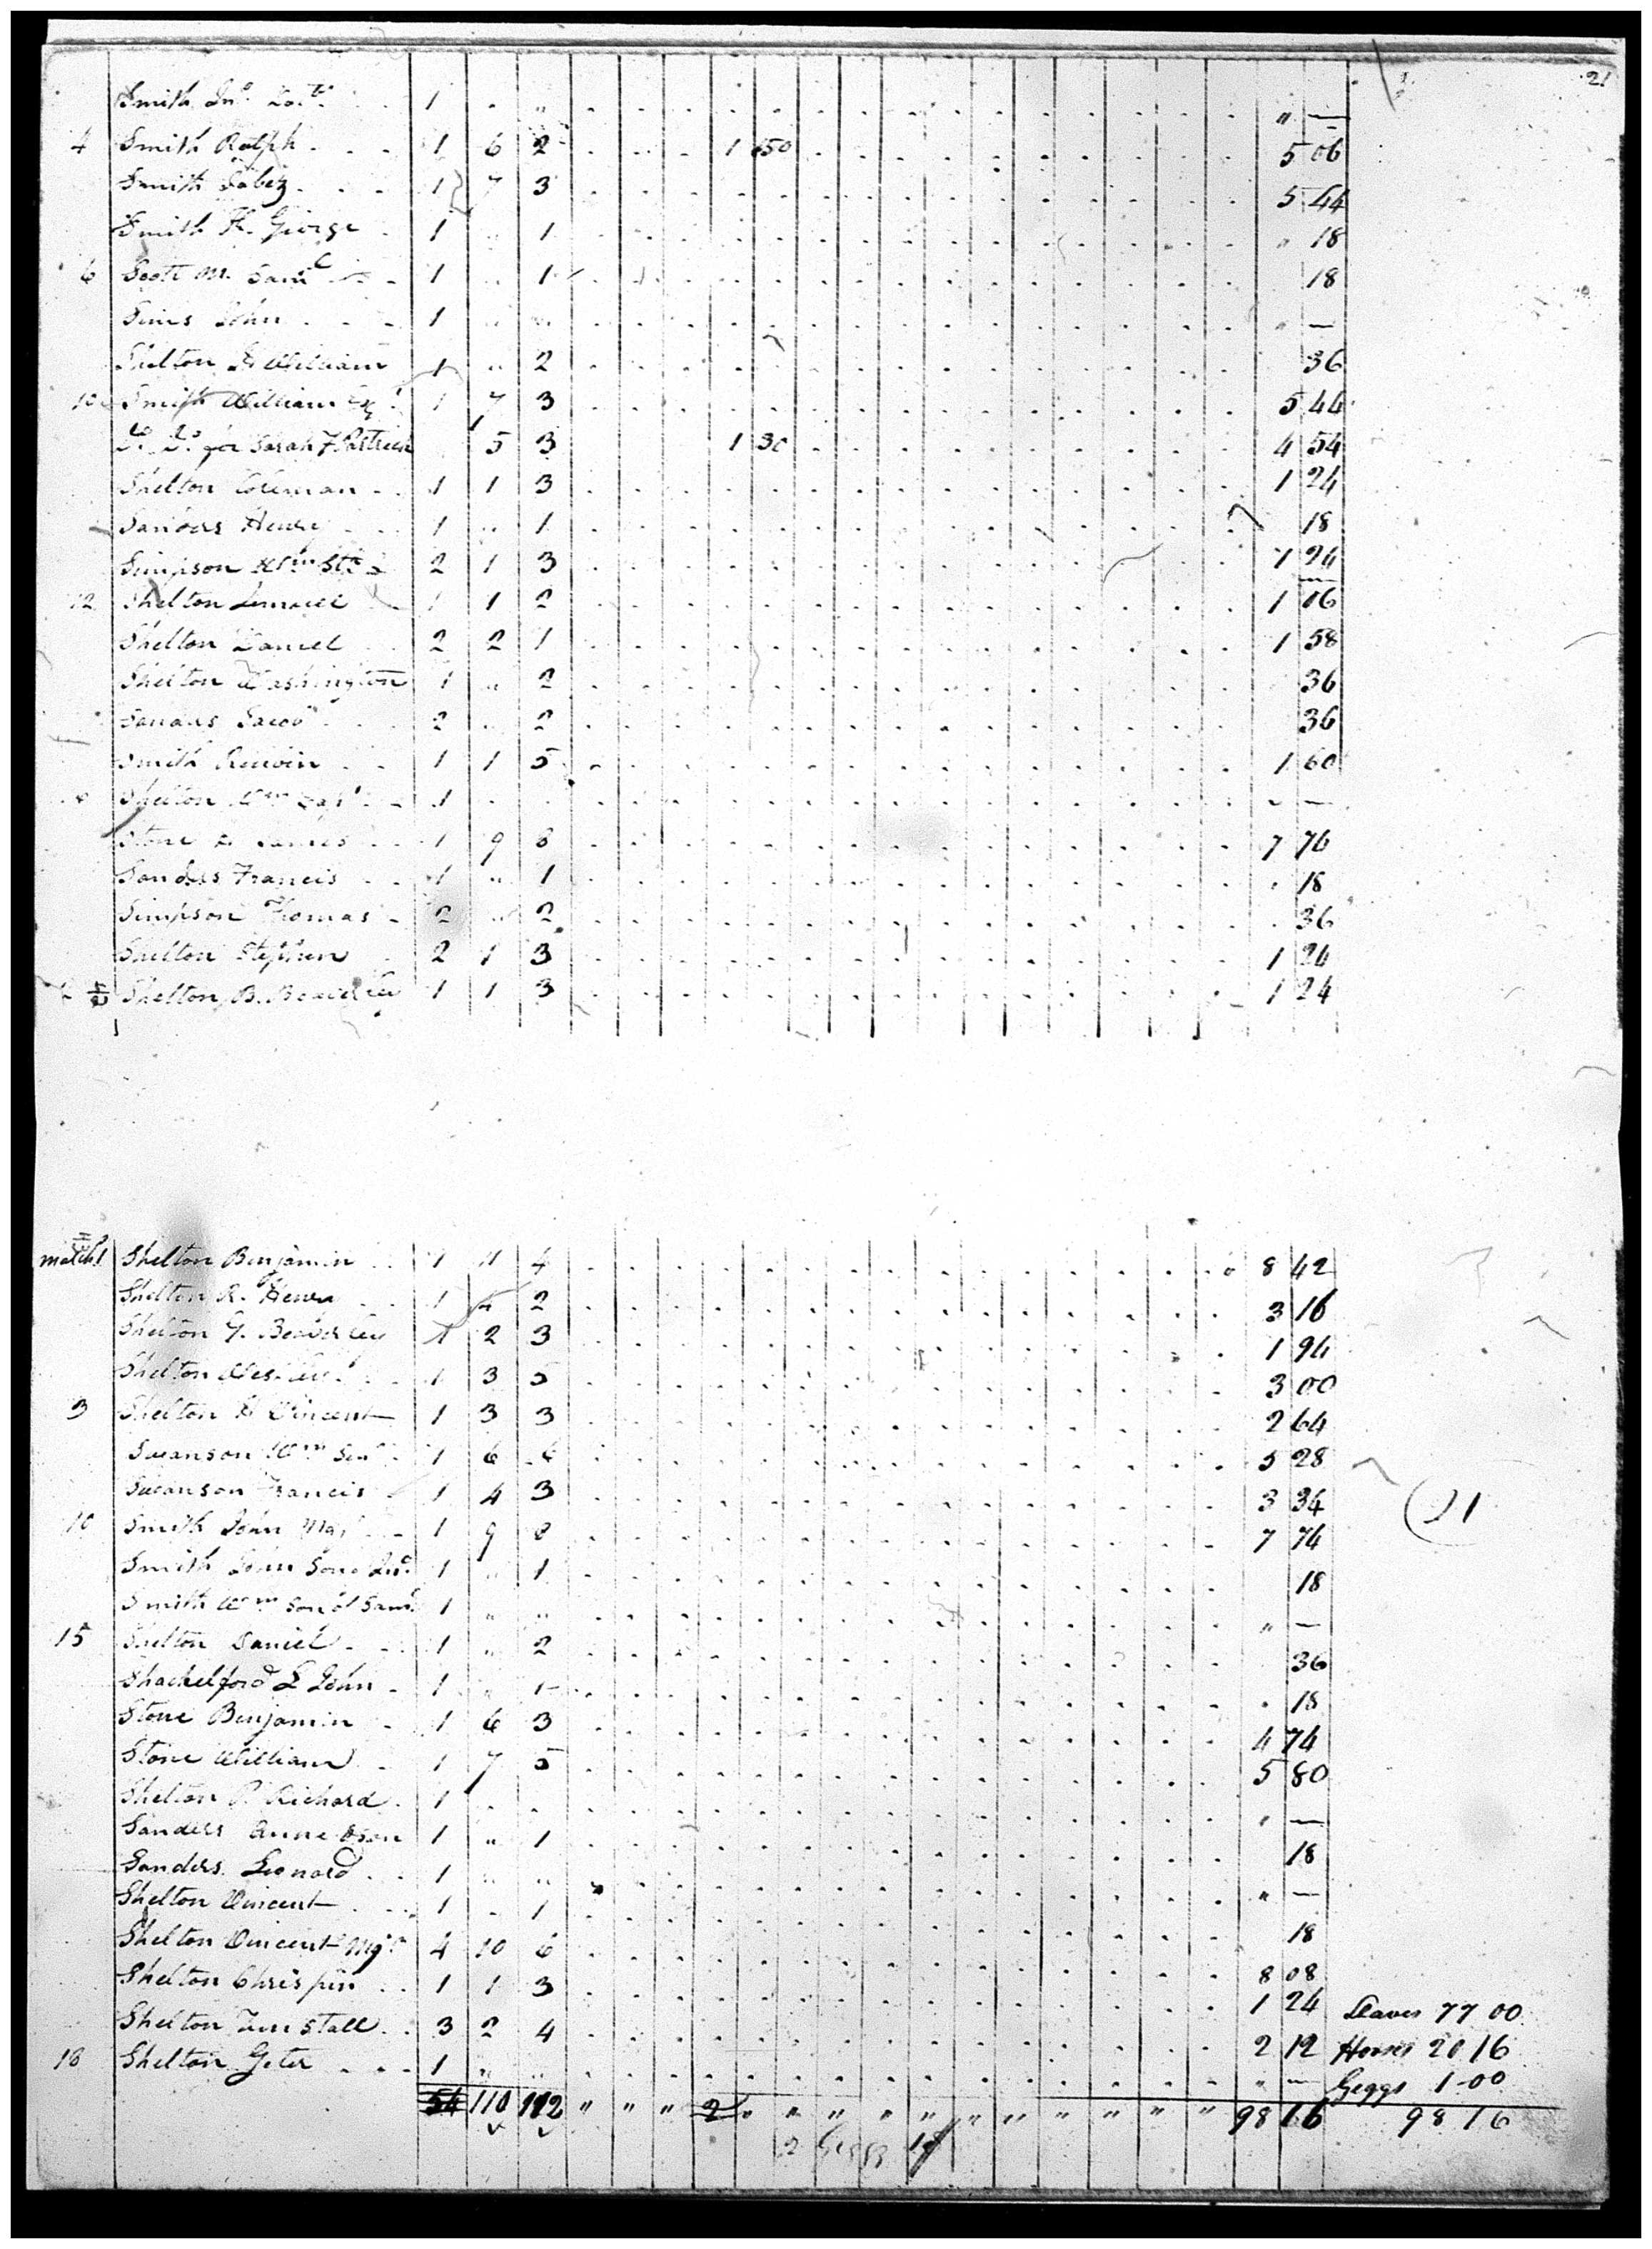 21
Smith Jno. 1 . "   " —
4 Smith Ralph 1 6 2 1 50 5 06
Smith Jabez 1 7 3 5 44
Smith H. George 1 " 1 " 18
6 Scott M. Saml 1 " 1 18
Sims John 1 " " " —
Shelton H William 1 " 2 36
10 Smith William 1 7 3 5 44
Do. Do. for Sarah 5 3 1 50 4 54
Shelton Coleman 1 1 3 1 24
Sanders Henry 1 " 1 18
Simpson Wm 2 1 3 1 24
12 Shelton Lemuel 1 1 2 1 06
Shelton Daniel 2 2 1 1 58
Shelton Washington 1 " 2 36
Sanders Jacob 2 " 2 36
Smith 1 1 5 1 60
Shelton Wm Capt 1 . . " —
Stone James 1 9 8 7 74
Sanders Francis 1 " 1 18
Simpson Thomas 2 " 2 36
Shelton Stephen 2 1 3 1 24
Shelton B. Beverley 1 1 3 1 24
match! Shelton Benjamin 1 11 4 8 42
Shelton R. Henry 1 4 2 3 16
Shelton Y. Beverley 1 2 3 1 94
Shelton 1 3 5 3 00
3 Shelton H Vincent 1 3 3 2 64
Swanson Wm Senr 1 6 6 5 28
Swanson Francis 1 4 3 3 34
(21
10 Smith John Maj 1 9 8 7 74
Smith John Son Jno. 1 " 1 18
Smith Wm son of Saml 1 " " " —
15 Shelton Daniel 1 " 2 36
Shackelford L John 1 " 1 18
Stone Benjamin 1 6 3 4 74
Stone William 1 7 5 5 80
Shelton P. Richard 1 . . " —
Sanders Anne & son 1 " 1 18
Sanders Leonard 1 " " " —
Shelton Vincent 1 . 1 18
Shelton Vincent Majr 4 10 6 8 08
Shelton Chrispin 1 1 3 1 24
Slaves 77 00
Shelton Tunstall 3 2 4 2 12
Horses 20 16
18 Shelton Geter 1 " " " —
Geggs 1 00
54 110 112 " " " 2 " " " " " " " " " " " 98 16
98 16
2 Geggs 1$